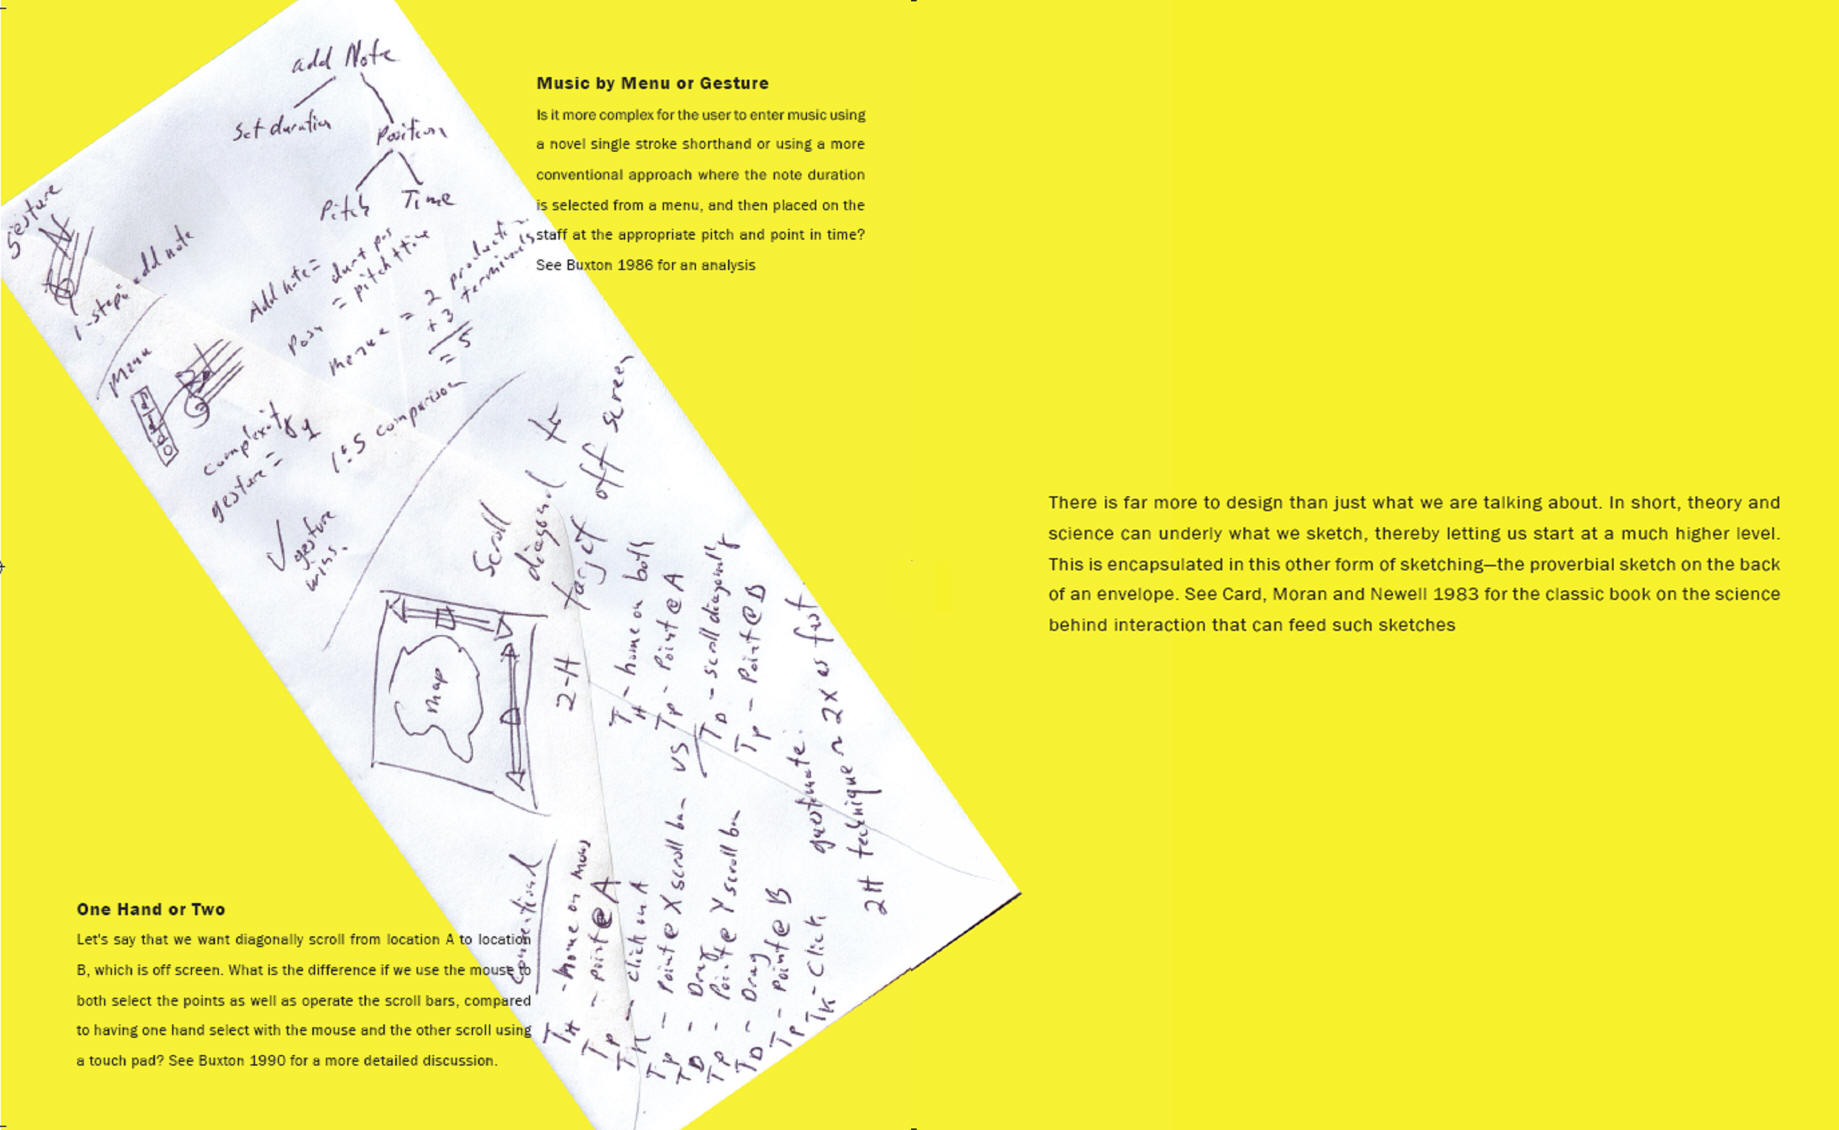 add Note
Set duration
Position
Pitch Time
gesture
1-step: add note
Add note = dur + pos
Posn = pitch + time
menue = 2 production
+ 3 terminals
= 5
Menu
complexity of
gesture = 1
1:5 comparison
√ gesture
wins.
Music by Menu or Gesture
Is it more complex for the user to enter music using
a novel single stroke shorthand or using a more
conventional approach where the note duration
is selected from a menu, and then placed on the
staff at the appropriate pitch and point in time?
See Buxton 1986 for an analysis
Scroll
diagonal to
target off screen
map
2-H
TH - home on both
TP - Point @ A
TD - scroll diagonally
TP - Point @ B
VS
conventional
TH - home on mouse
TP - point @ A
TK - click on A
TP - point @ X scroll bar
TD - Drag
TP - Point @ Y scroll bar
TD - Drag
TP - point @ B
TK - Click
guestimate:
2H technique ~ 2X as fast
One Hand or Two
Let's say that we want diagonally scroll from location A to location
B, which is off screen. What is the difference if we use the mouse to
both select the points as well as operate the scroll bars, compared
to having one hand select with the mouse and the other scroll using
a touch pad? See Buxton 1990 for a more detailed discussion.
There is far more to design than just what we are talking about. In short, theory and
science can underly what we sketch, thereby letting us start at a much higher level.
This is encapsulated in this other form of sketching—the proverbial sketch on the back
of an envelope. See Card, Moran and Newell 1983 for the classic book on the science
behind interaction that can feed such sketches